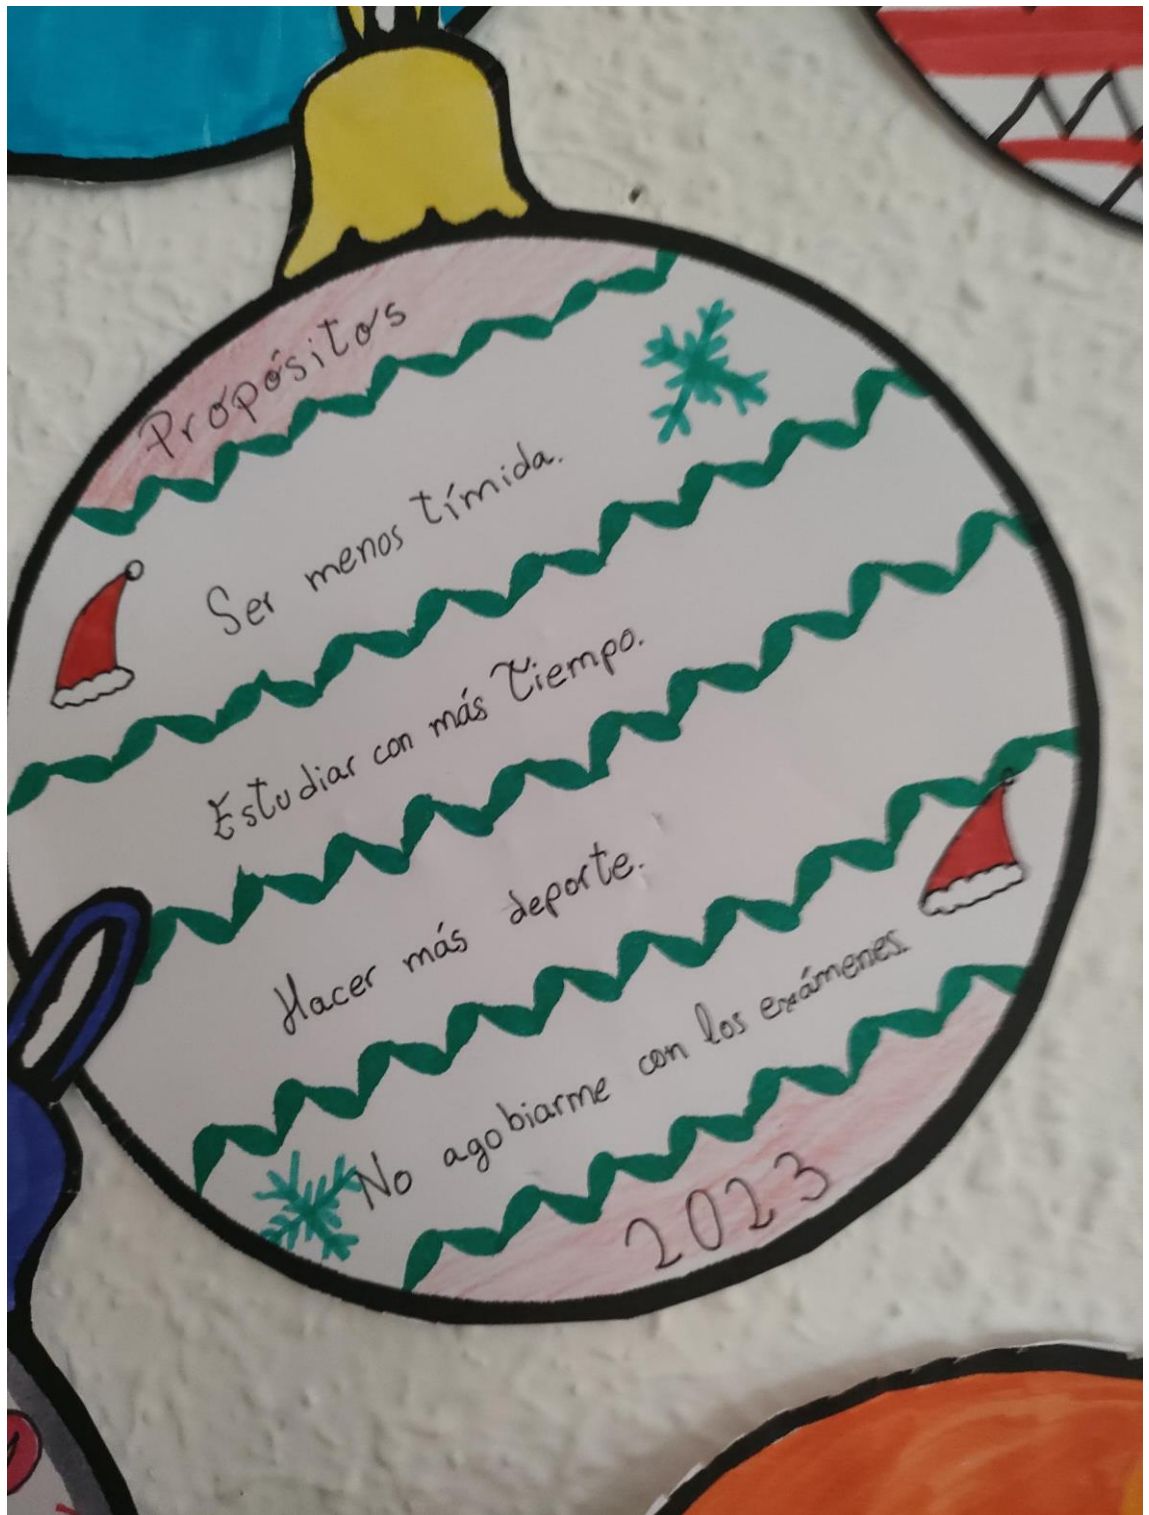 Propósitos
Ser menos tímida.
Estudiar con más tiempo.
Hacer más deporte.
No agobiarme con los exámenes.
2023